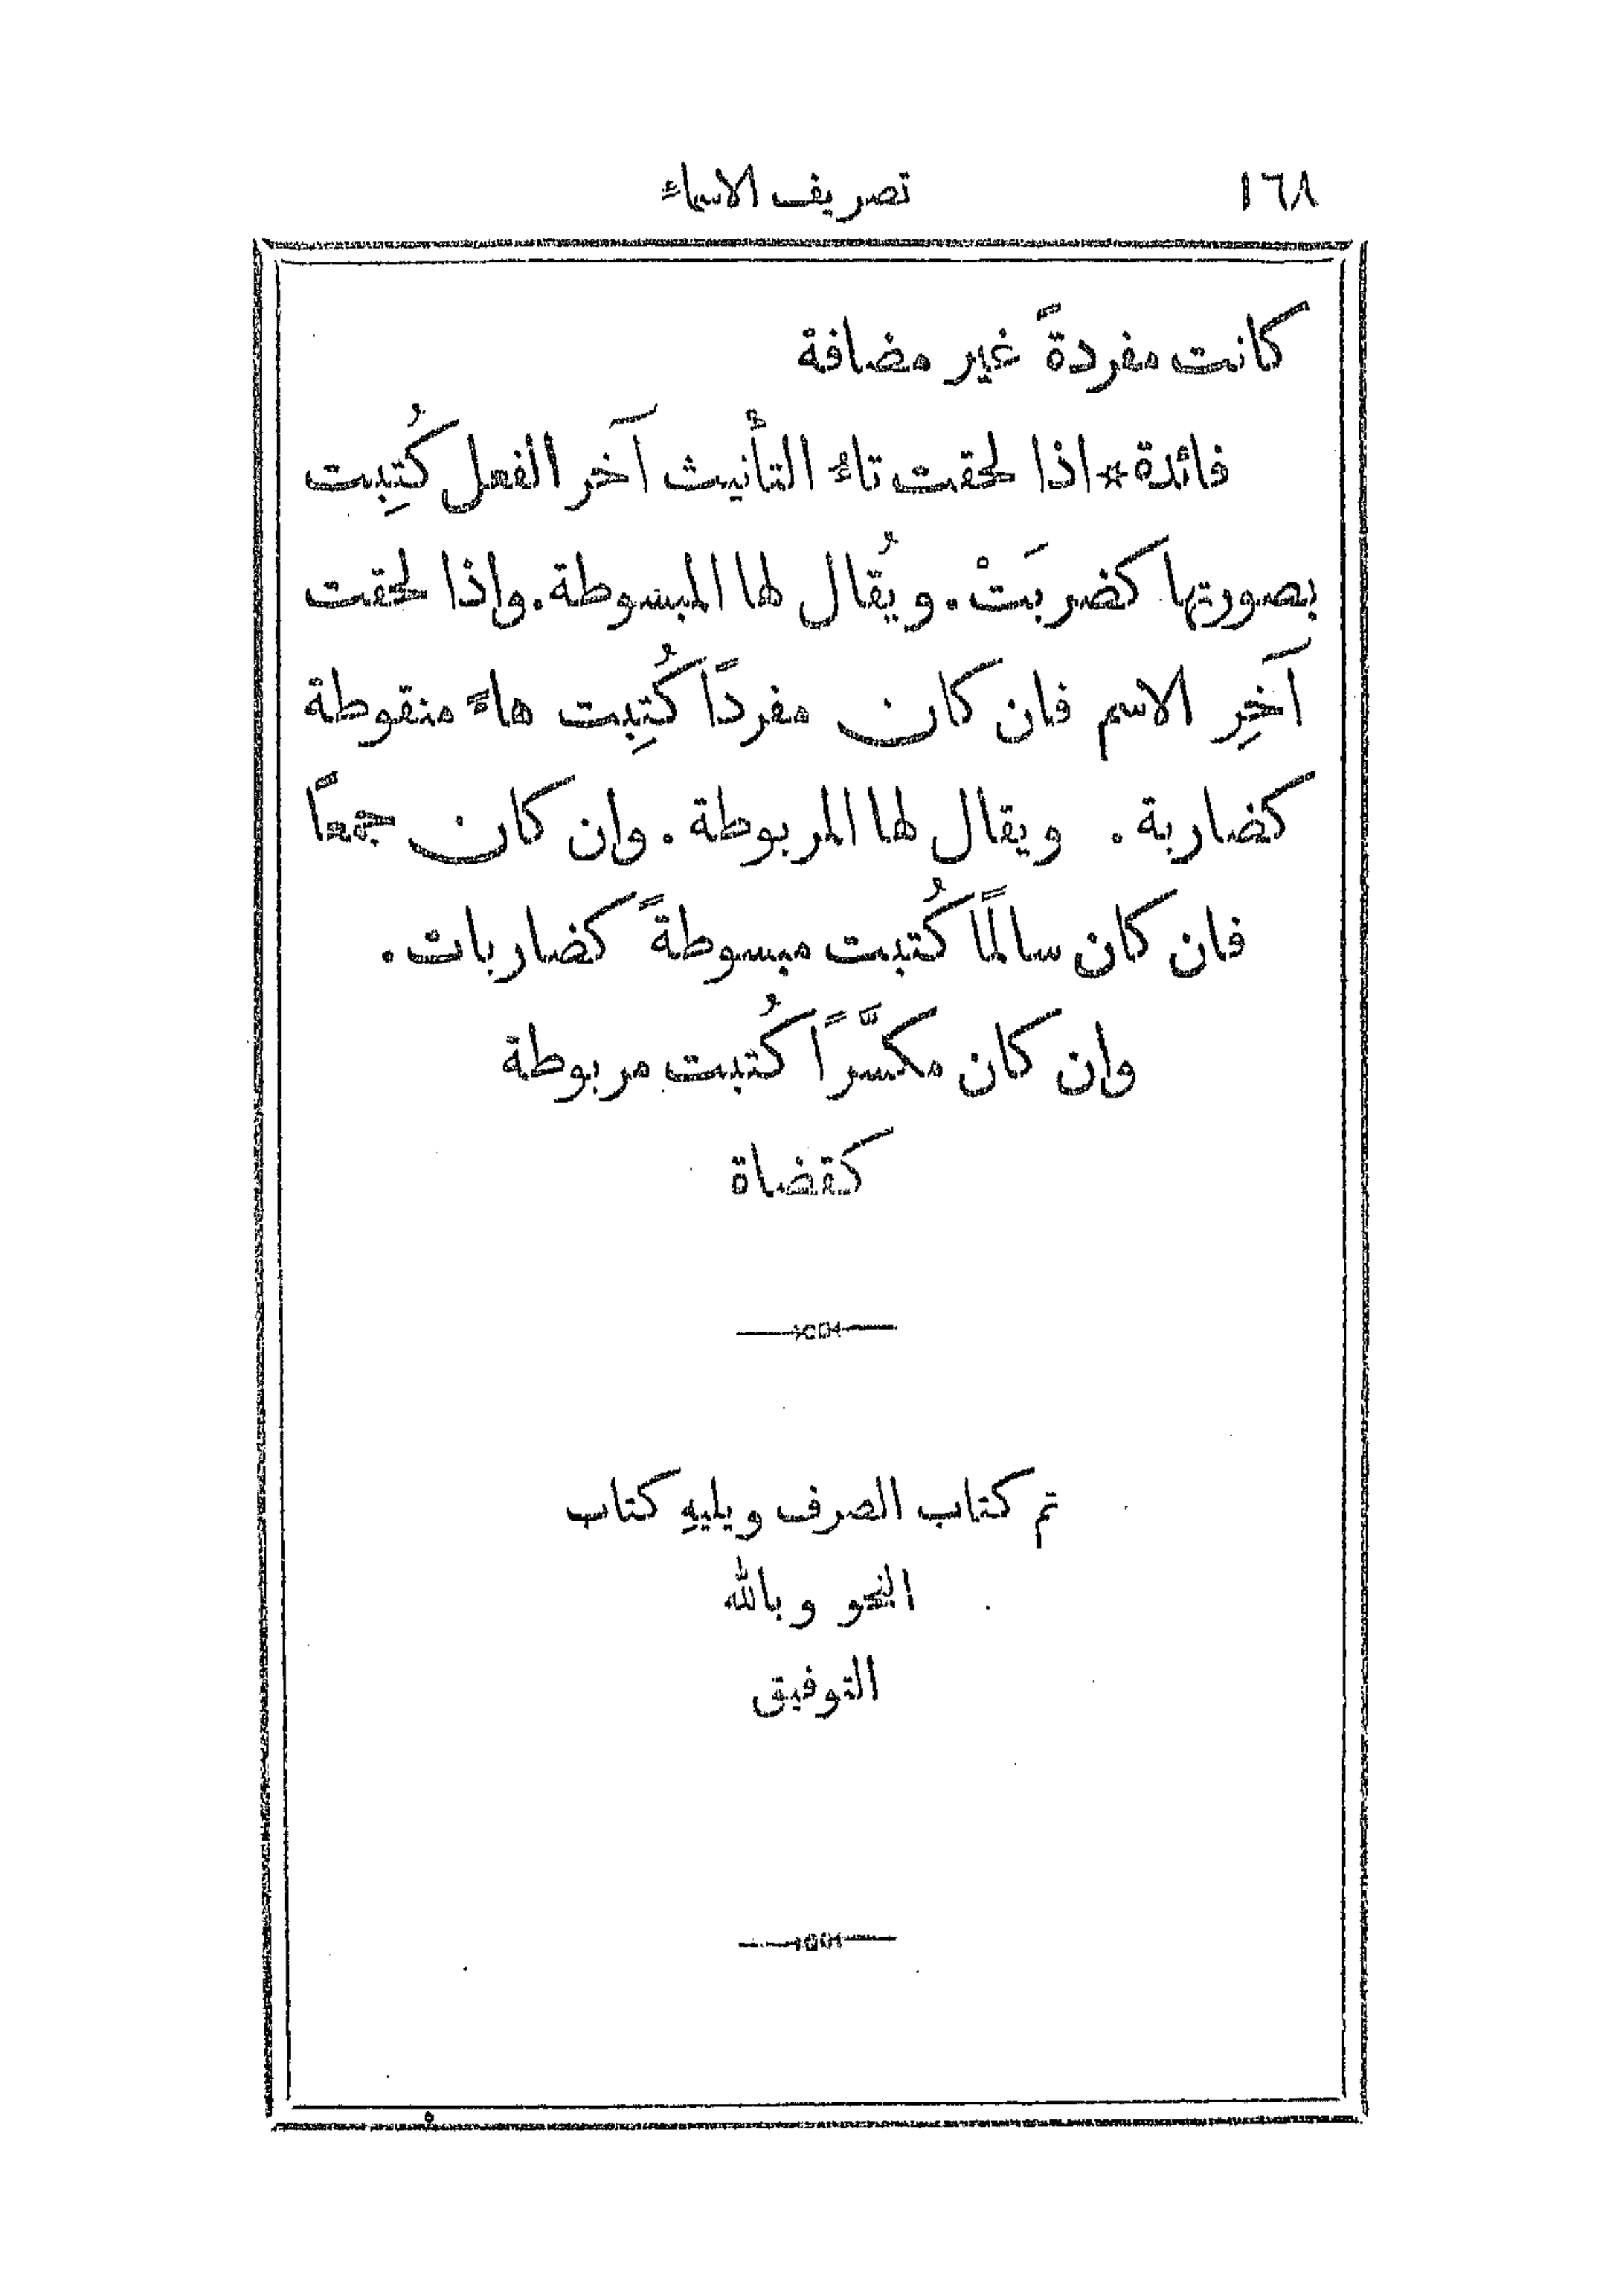 ١٦٨ تصريف الاسماء
كانت مفردةً غير مضافة
فائدة * اذا لحقت تاءُ التأنيث آخر الفعل كُتِبت
بصورتها كضربَتْ. ويُقال لها المبسوطة. واذا لحقت
آخِرِ الاسم فان كان مفردًا كُتِبت هاءً منقوطة
كضاربة. ويقال لها المربوطة. وان كان جمعًا
فان كان سالمًا كُتبت مبسوطةً كضاربات.
وان كان مكسَّرًا كُتبت مربوطة
كقضاة
تم كتاب الصرف ويليهِ كتاب
النحو وبالله
التوفيق